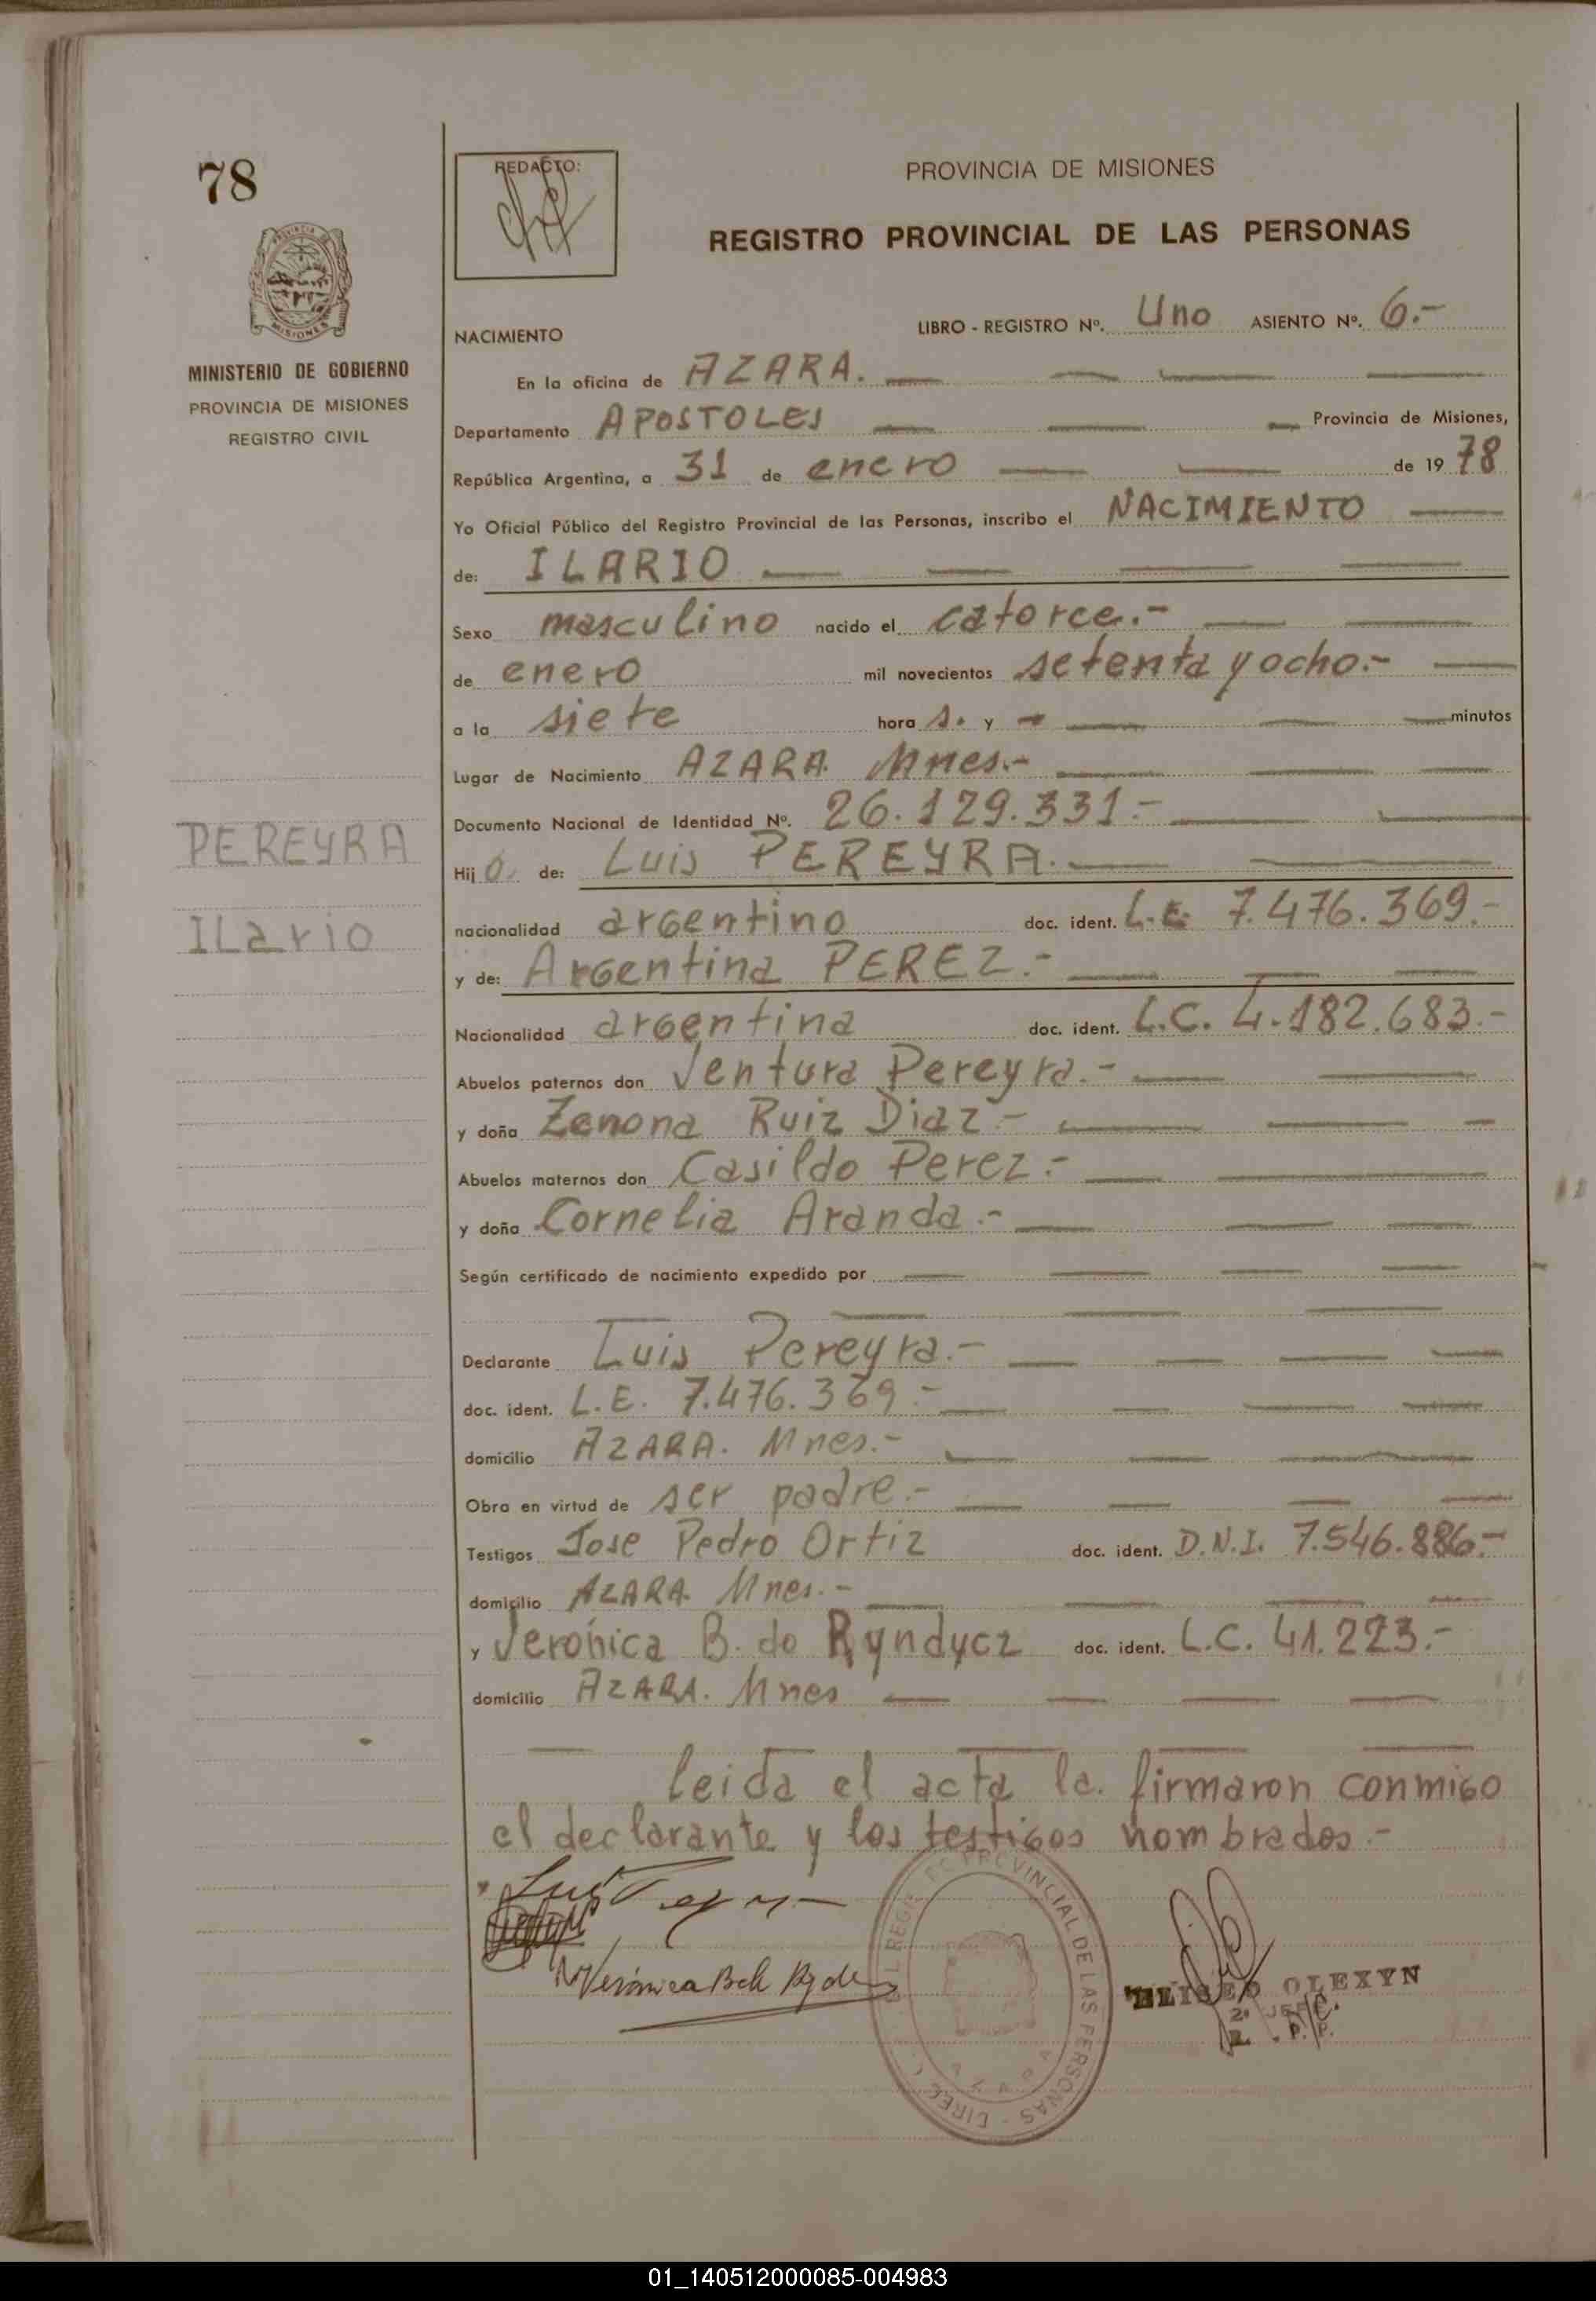 78
REDACTO:
PROVINCIA DE MISIONES
REGISTRO PROVINCIAL DE LAS PERSONAS
MINISTERIO DE GOBIERNO
PROVINCIA DE MISIONES
REGISTRO CIVIL
NACIMIENTO LIBRO - REGISTRO Nº. Uno ASIENTO Nº. 6.-
En la oficina de AZARA.
Departamento APOSTOLES Provincia de Misiones,
República Argentina, a 31 de enero de 19 78
Yo Oficial Público del Registro Provincial de las Personas, inscribo el NACIMIENTO
de: ILARIO
Sexo masculino nacido el catorce.-
de enero mil novecientos setenta y ocho.-
a la siete hora s. y - minutos
Lugar de Nacimiento AZARA. Mnes.-
Documento Nacional de Identidad Nº. 26.129.331.-
PEREYRA
Hij o de: Luis PEREYRA.
ILario
nacionalidad argentino doc. ident. L.E. 7.476.369.-
y de: Argentina PEREZ.-
Nacionalidad argentina doc. ident. L.C. 4.182.683.-
Abuelos paternos don Ventura Pereyra.-
y doña Zenona Ruiz Diaz-
Abuelos maternos don Casildo Perez.-
y doña Cornelia Aranda.-
Según certificado de nacimiento expedido por
Declarante Luis Pereyra.-
doc. ident. L.E. 7.476.369.-
domicilio AZARA. Mnes.-
Obra en virtud de ser padre.-
Testigos Jose Pedro Ortiz doc. ident. D.N.I. 7.546.886.-
domicilio AZARA. Mnes.-
y Verónica B. de Ryndycz doc. ident. L.C. 41.223.-
domicilio AZARA. Mnes
leida el acta la firmaron conmigo
el declarante y los testigos nombrados.-
Verónica
PROVINCIAL DE LAS PERSONAS
AZARA
ELISEO OLEXYN
2º JEFE
R. P. P.
01_140512000085-004983